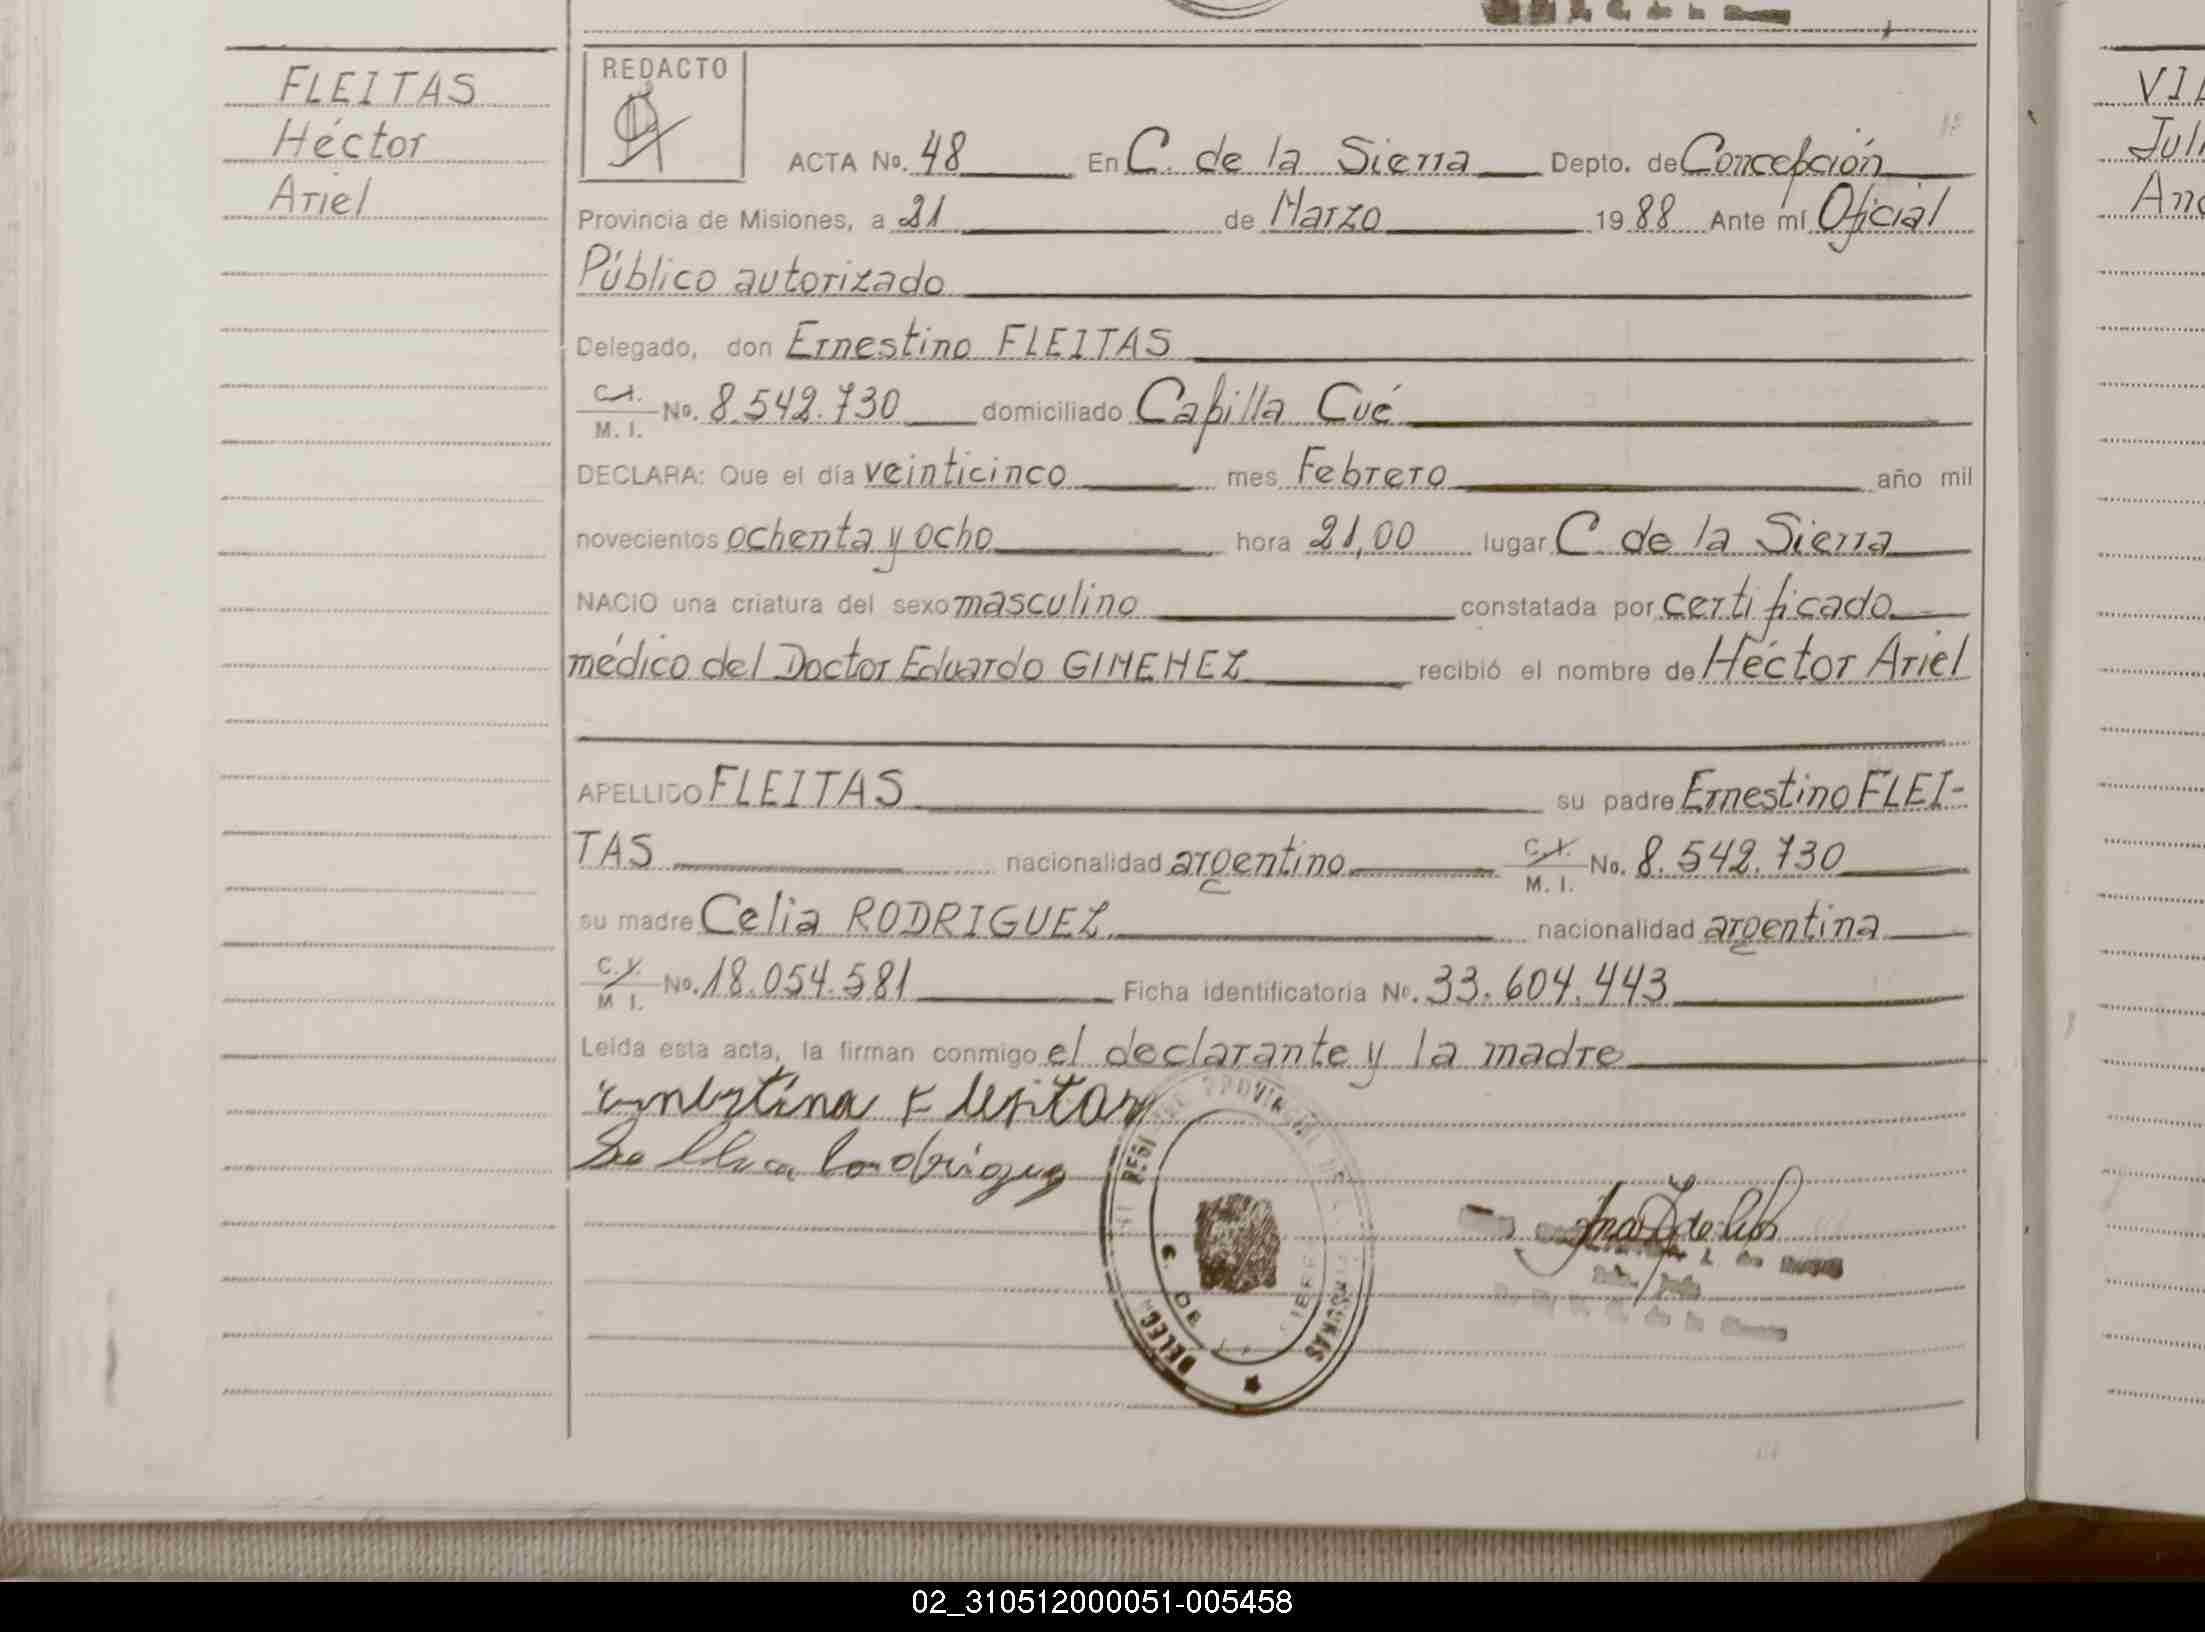 FLEITAS
Héctor
Ariel
REDACTO
ACTA No. 48 En C. de la Sierra Depto. de Concepción
Provincia de Misiones, a 21 de Marzo 1988 Ante mí Oficial
Público autorizado
Delegado, don Ernestino FLEITAS
C.I.
M. I. No. 8.542.730 domiciliado Capilla Cué
DECLARA: Que el día veinticinco mes Febrero año mil
novecientos ochenta y ocho hora 21,00 lugar C de la Sierra
NACIO una criatura del sexo masculino constatada por certificado
médico del Doctor Eduardo GIMENEZ recibió el nombre de Héctor Ariel
APELLIDO FLEITAS su padre Ernestino FLEI-
TAS nacionalidad argentino C.I.
M. I. No. 8.542.730
su madre Celia RODRIGUEZ nacionalidad argentina
C.I.
M I. No. 18.054.581 Ficha identificatoria No. 33.604.443
Leída esta acta, la firman conmigo el declarante y la madre
DELEG
C. DE LA SIERRA
VIL
Juli
Ana
02_310512000051-005458